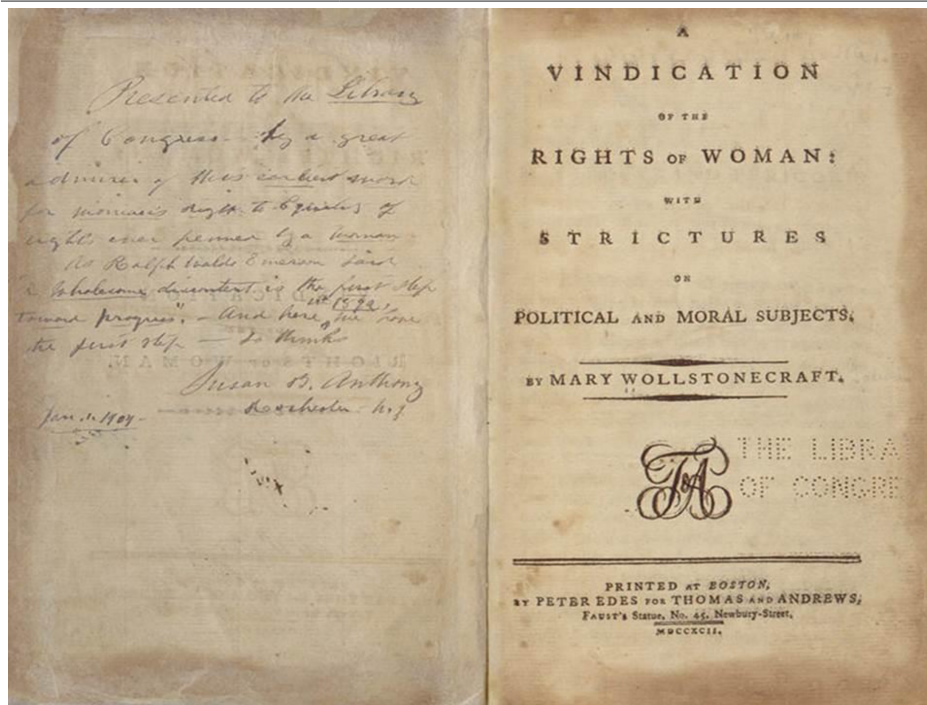 Presented to the Library
of Congress by a great
admirer of this earliest work
for woman's right to Equality of
rights ever penned by a woman
As Ralph Waldo Emerson said
Wholesome discontent is the first step
toward progress". - And here, in 1892, we have
the first step — so thinks
Susan B. Anthony
Rochester N.Y.
Jan. 1. 1904-
A
VINDICATION
OF THE
RIGHTS OF WOMAN:
WITH
STRICTURES
ON
POLITICAL AND MORAL SUBJECTS.
BY MARY WOLLSTONECRAFT.
T&A
THE LIBRA
OF CONGRE
PRINTED AT BOSTON,
BY PETER EDES FOR THOMAS AND ANDREWS,
FAUST'S Statue, No. 45, Newbury-Street,
MDCCXCII.